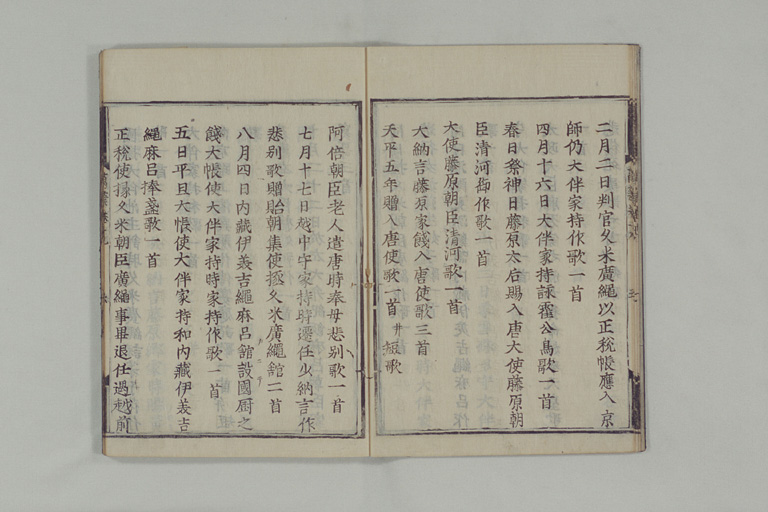 二月二日判官久米廣繩以正稅帳應入京
師仍大伴家持作歌一首
四月十六日大伴家持詠霍公鳥歌一首
春日祭神日藤原太后賜入唐大使藤原朝
臣清河御作歌一首
大使藤原朝臣清河歌一首
大納言藤原家餞入唐使歌三首
天平五年贈入唐使歌一首并短歌
阿倍朝臣老人遣唐時奉母悲别歌一首
七月十七日越中守家持時遷任少納言作
悲别歌贈貽朝集使掾久米廣繩舘二首
八月四日内藏伊美吉繩麻呂舘設國厨之
餞大帳使大伴家持時家持作歌一首
五日平旦大帳使大伴家持和内藏伊美吉
繩麻呂捧盞歌一首
正稅使掾久米朝臣廣繩事畢退任過越前